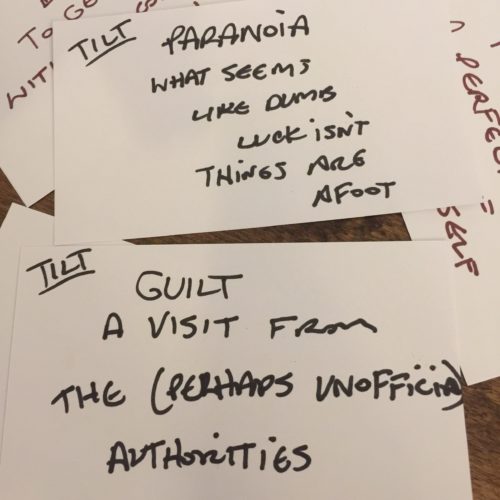 TO GE
WITH
TILT
PARANOIA
WHAT SEEMS
LIKE DUMB
LUCK ISN'T
THINGS ARE
AFOOT
PERFEC
SELF
TILT
GUILT
A VISIT FROM
THE (PERHAPS UNOFFICIAL)
AUTHORITIES